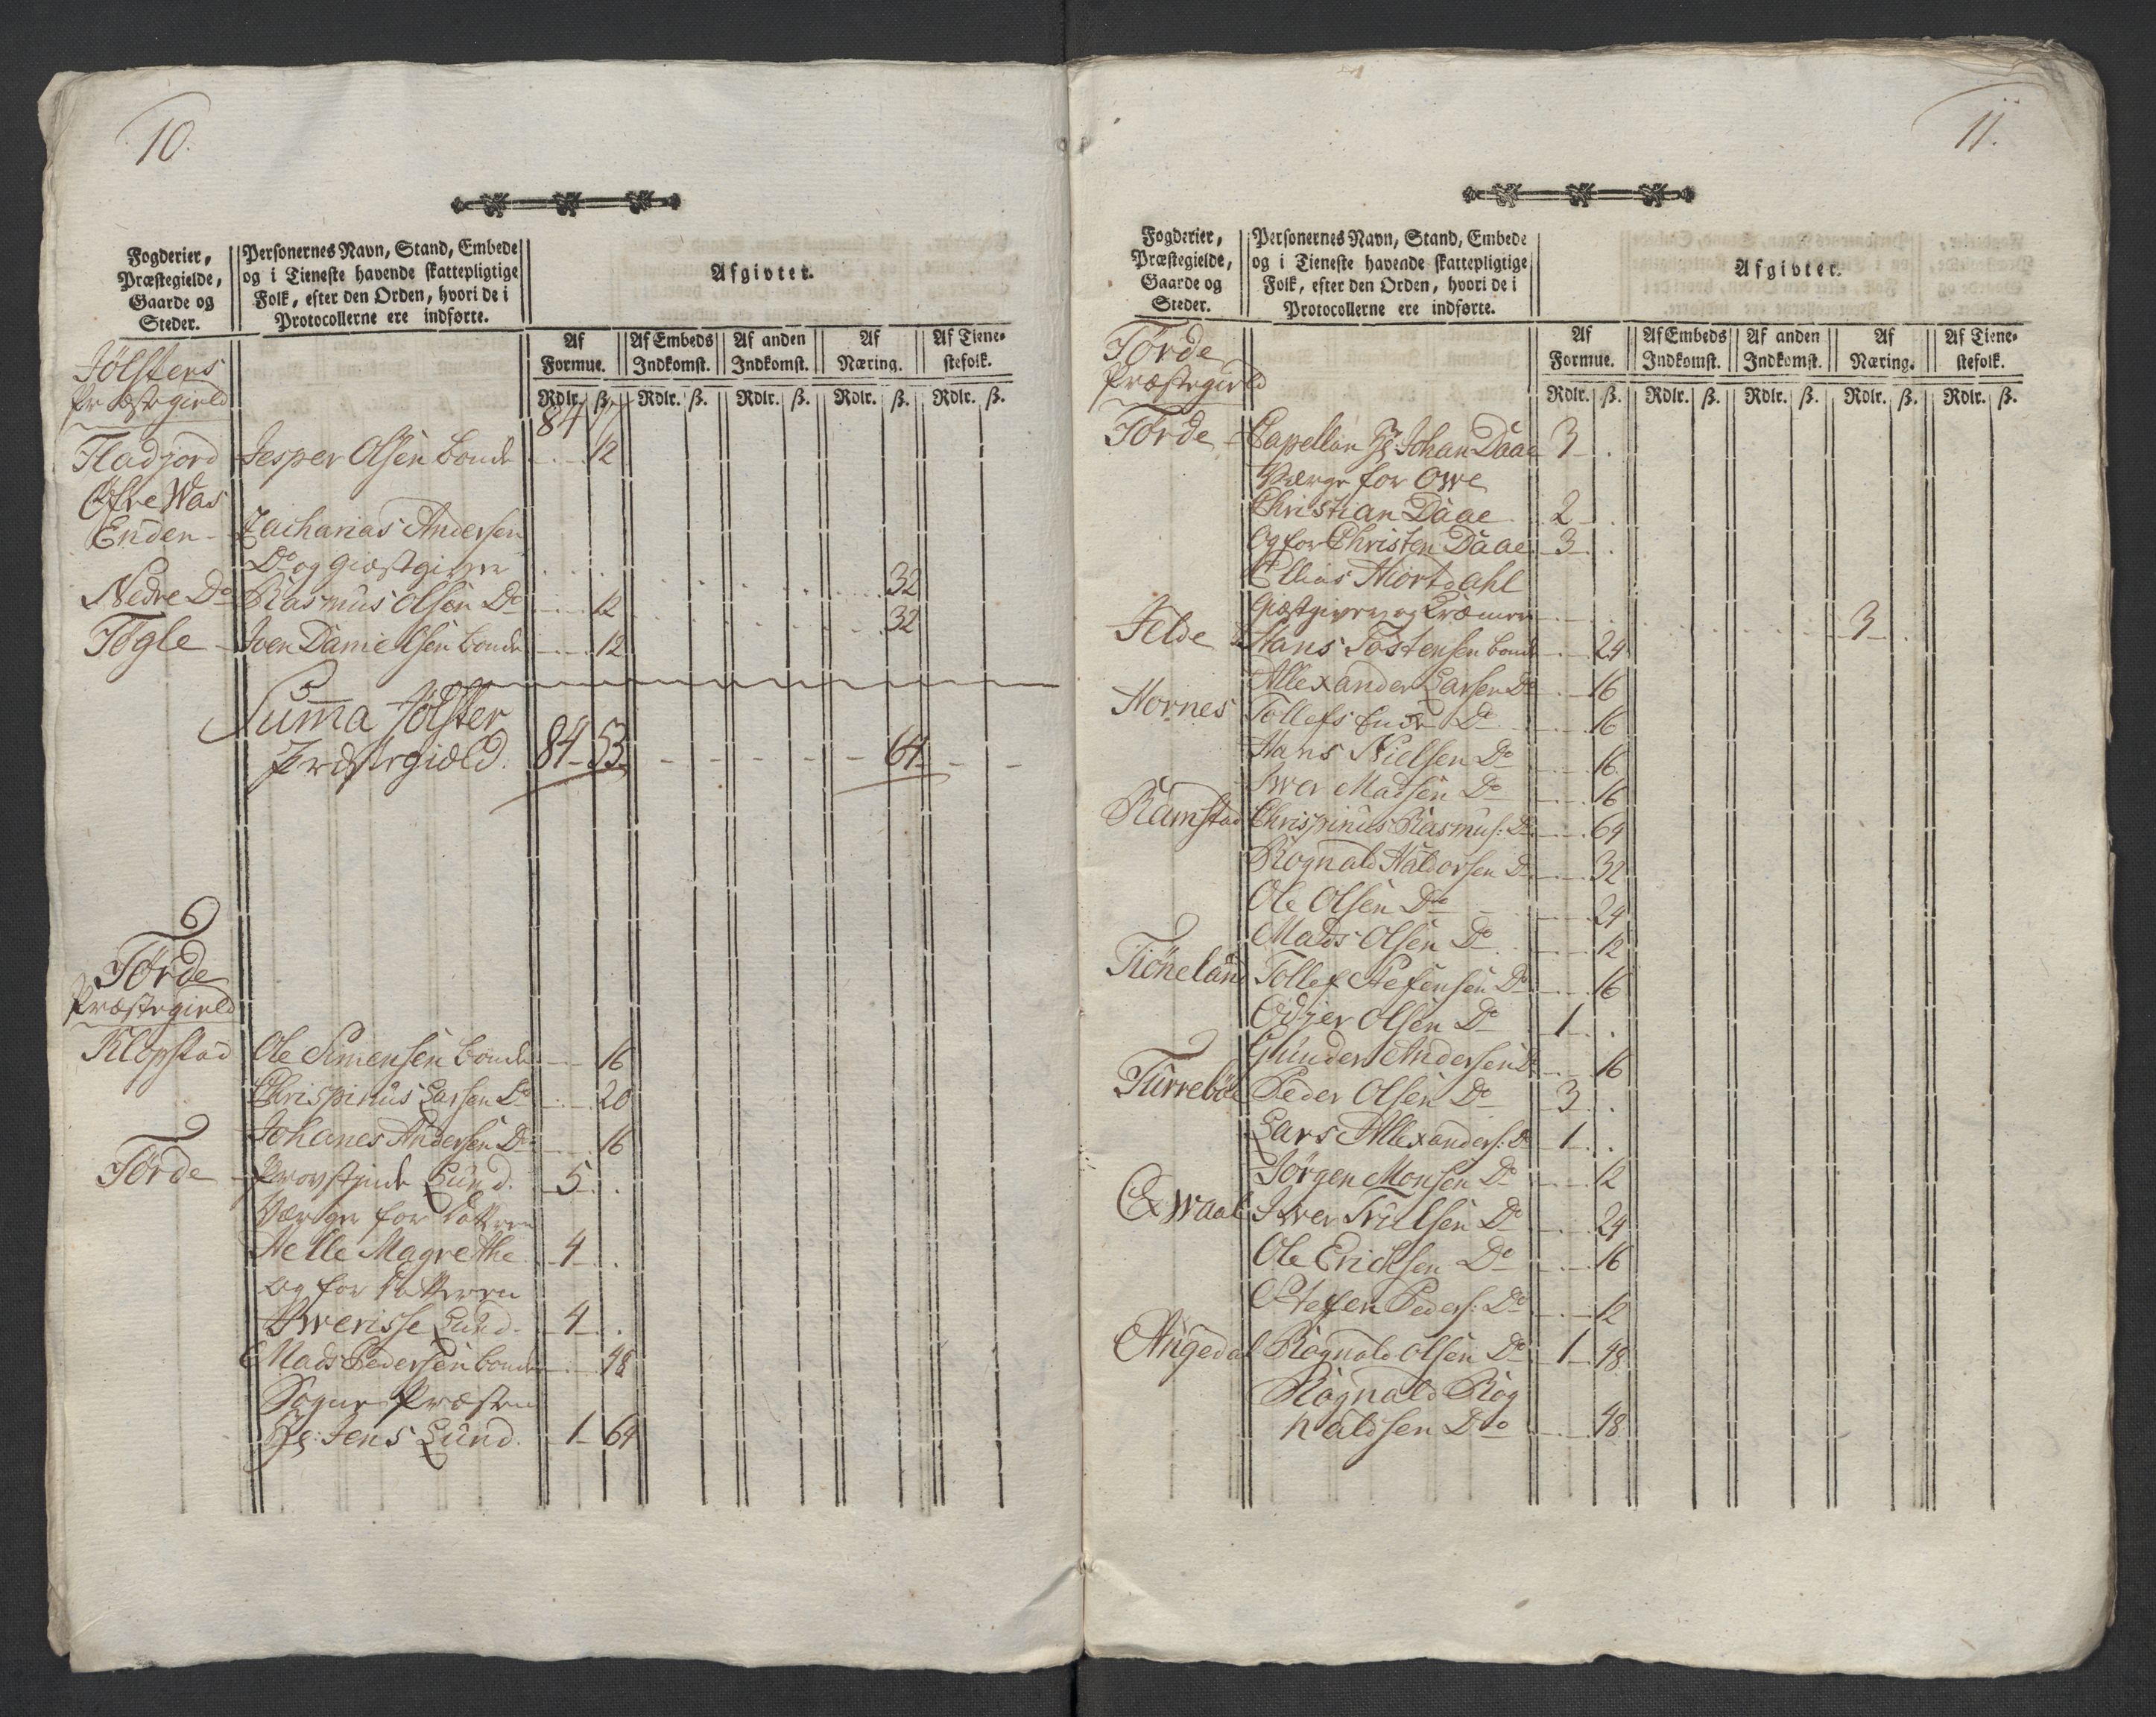 10.
Fogderier,
Præstegielde,
Gaarde og
Steder.
Personernes Navn, Stand, Embede
og i Tieneste havende skattepligtige
Folk, efter den Orden, hvori de i
Protocollerne ere indførte.
Afgivter.
Af Formue. Af Embeds Indkomst. Af anden Indkomst. Af Næring. Af Tienestefolk.
Rdlr. ß. Rdlr. ß. Rdlr. ß. Rdlr. ß. Rdlr. ß.
Jølsters
Præstegield
84 17
Fladjord Jesper Olsen bonde 12
Øfre Was
Enden Zacharias Andersen
Do og giæstgiver 32
Nedre Do Rasmus Olsen Do 12 32
Føgle Joen Danielsen bonde 12
Summa Jølster
Præstegield. 84 53 64
Førde
Præstegield
Klopstad Ole Simensen bonde 16
Chrispinus Larsen Do 20
Johanes Andersen Do 16
Førde Provstinde Lund. 5
Værge for datteren
Helle Magrethe 4
og for datteren
Iwerisse Lund 4
Mads Pedersen bonde 48
Sogne Præsten
Hr: Jens Lund. 1 64
11.
Fogderier,
Præstegielde,
Gaarde og
Steder.
Personernes Navn, Stand, Embede
og i Tieneste havende skattepligtige
Folk, efter den Orden, hvori de i
Protocollerne ere indførte.
Afgivter.
Af Formue. Af Embeds Indkomst. Af anden Indkomst. Af Næring. Af Tienestefolk.
Rdlr. ß. Rdlr. ß. Rdlr. ß. Rdlr. ß. Rdlr. ß.
Førde
Præstegield
Førde Capellan Hr Johan Daae 3
Værge for Owe
Christian Daae 2
Og for Christen Daae 3
Ellias Hiortdahl
Giæstgiver og Kræmer 3
Felde Hans Tostensen bonde 24
Allexander Larsen Do 16
Hornes Tollefs Enke Do 16
Hans Nielsen Do 16
Iwer Madsen Do 16
Ramstad Chrispinus Rasmus: Do 64
Rognald Haldorsen Do 32
Ole Olsen Do 24
Mads Olsen Do 12
Tiøneland Tollef Stefensen Do 16
Odjer Olsen Do 1
Gunder Andersen Do 16
Furrebøe Peder Olsen Do 3
Lars Allexanders: Do 1
Jørgen Monsen Do 12
Exwaal Iwer Trulsen Do 24
Ole Erichsen Do 16
Stefen Peders: Do 12
Angedal Rognald Olsen Do 1 48
Rognald Rog
naldsen Do 48